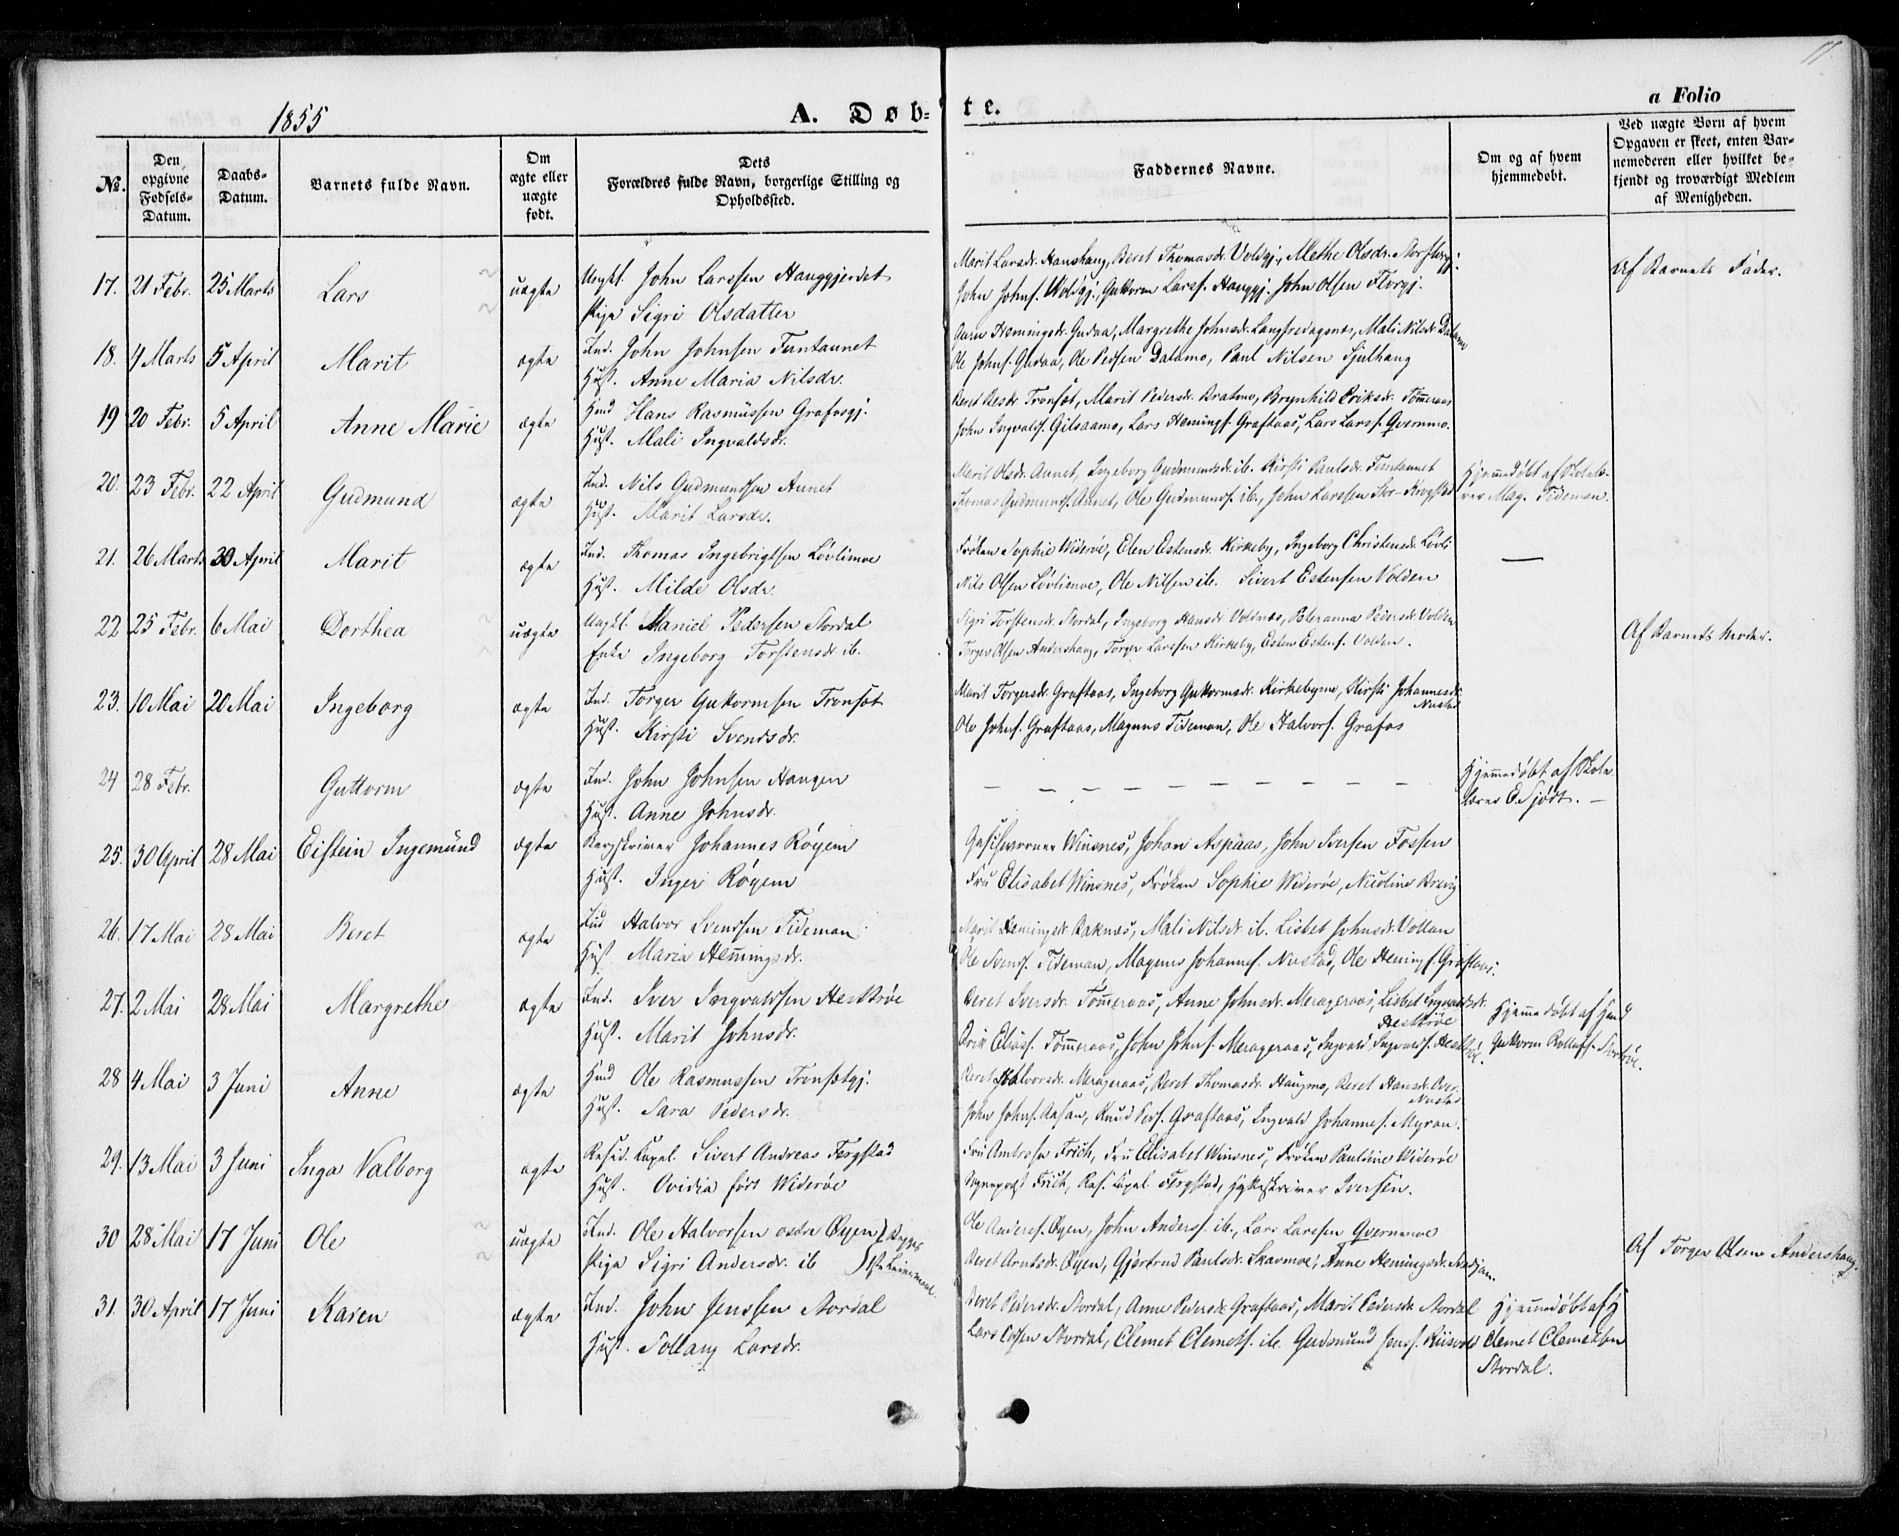 17
a Folio
1855
A. Døb-
te.
No.
Den opgivne Fødsels-Datum.
Daabs-Datum.
Barnets fulde Navn.
Om ægte eller uægte født.
Dets Forældres fulde Navn, borgerlige Stilling og Opholdssted.
Faddernes Navne.
Om og af hvem hjemmedøbt.
Ved uægte Børn af hvem Opgaven er skeet, enten Barnemoderen eller hvilket bekjendt og troværdigt Medlem af Menigheden.
17. 21 Febr. 25 Marts Lars uægte Ungkl. John Larssen Hauggjerdet
Pige Sigri Olsdatter
Marit Larsdr. Hanshaug, Beret Thomasdr. Voldgj., Methe Olsdr.
John Johns. Voldgj., Guttorm Larss. Hauggj. John Olsen Florgj.
Af Barnets Fader.
18. 9 Marts 5 April Marit ægte Ind. John Johnsen Furutaunet
Hust. Anne Maria Nilsdr.
Hemingsdr. Gudaa, Margrethe Johnsdr. Mali Nilsdr. Dalamo
Ole Johns. Gudaa, Ole Dalamo, Paul Nilsen Sjulhaug
19 20 Febr. 5 April Anne Marie ægte Hmd Hans Rasmussen Grafosgj.
Hust. Mali Ingvaldsdr.
Beret Tronsøt, Marit Pedersdr. Bratmo, Brynhild Eriksdr. Tømeraas
John Ingvalds. Gilsaamo, Lars Hemings. Graftaas, Lars Larss. Qvernmo.
20. 23 Febr. 22 April Gudmund ægte Ind. Nils Gudmundsen Aunet
Hust. Marit Larsdr.
Marit Olsdr. Aunet, Ingeborg Gudmundsdr. ib. Kirsti Paulsdr.
Thomas Gudmunds. Aunet, Ole Gudmunds. ib., John Larssen
Hjemmedøbt af Skolelærer Mag. Tideman.
21. 26 Marts 30 April Marit ægte Ind. Thomas Ingebrigtsen Løvlimoe
Hust. Milde Olsdr.
Frøken Sophie Widerøe, Elen Estensdr. Kirkeby, Ingeborg Christensdr. Løvli
Nils Olsen Løvlimoe, Ole Nilsen ib. Sivert Estensen Volden
—
22 25 Febr. 6 Mai Dorthea uægte Ungkl. Daniel Pedersen Stordal
Enke Ingeborg Torstensdr. ib.
Sigri Torstensdr. Stordal, Ingeborg Hansdr. Voldnæs, Peteranna Pedersdr. Volden
Torger Olsen Andershaug, Torger Larssen Kirkeby, Esten Estens. Volden.
Af Barnets Moder.
23. 10 Mai 20 Mai Ingeborg ægte Ind. Torger Guttormsen Tronsøt
Hust. Kirsti Svendsdr.
Marit Torgersdr. Graftaas, Ingeborg Guttormsdr. Kirkebymo, Kirsti Johannesdr. Nustad
Ole Johns. Graftaas, Magnus Tideman, Ole Halvors. Grafos
24 28 Febr. Guttorm ægte Ind. John Johnsen Haugen
Hust. Anne Johnsdr.
— — — — — — — — — — —
Hjemmedøbt af Skolelærer E. Fjødt. —
25. 30 April 28 Mai Eistein Ingemund ægte Bergskriver Johannes Røyem
Hust. Inger Røyem
Winsnes, Johan Aspaas, John Iversen Fossen
Fru Elisabet Winsnes, Frøken Sophie Widerøe, Nicoline Brevig
26. 17 Mai 28 Mai Beret ægte Ind Halvor Svendsen Tideman
Hust Maria Hemingsdr.
Marit Hemingsdr. Raknæs, Mali Nilsdr. ib. Lisbet Johnsdr. Vollan
Ole Svends. Tideman, Magnus Johannes. Nustad, Ole Hemings. Graftaas.
27. 2 Mai 28 Mai Margrethe ægte Ind. Iver Ingvaldsen Hestrøe
Hust. Marit Johnsdr.
Beret Iversdr. Tømeraas, Anne Johnsdr. Merageraas, Lisbet Ingvaldsdr. Hestrøe
Erik Eliass. Tømeraas, John Johns. Merageraas, Ingvald Ingvalds. Hestrøe.
Hjemmedøbt af Hmd Guttorm Rollefs. Stortrøe.
28 4 Mai 3 Juni Anne ægte Hmd Ole Rasmussen Tronsøtgj.
Hust. Sara Pedersdr.
Beret Halvorsdr. Merageraas, Beret Thomasdr. Haugmo, Beret Hansdr. Over Nustad
John Johns. Aasan, Knud Peds. Graftaas, Ingvald Johannes. Myran.
29. 13 Mai 3 Juni Inga Valborg ægte Resid. Kapel. Sivert Andreas Fergstad
Hust. Ovidia født Widerøe
Fru Ambrosia Frich, Fru Elisabet Winsnes, Frøken Pauline Widerøe
Sognepræst Frich, Res. Kapel Fergstad, Hytteskriver Iversen.
30 28 Mai 17 Juni Ole uægte Ind. Ole Halvorsen østre Øyen
Pige Sigri Andersdr. ib
Begges 1ste Leiermaal.
Ole Anderss. Øyen, John Anderss. ib., Lars Larssen Qvernmoe
Beret Arntsdr. Øyen, Gjertrud Paulsdr. Skarmoe, Anne Hemingsdr.
Af Torger Olsen Andershaug.
31. 30 April 17 Juni Karen ægte Ind. John Jenssen Stordal
Hust. Sollaug Larsdr.
Beret Pedersdr. Stordal, Anne Pedersdr. Graftaas, Marit Pedersdr. Stordal
Lars Olsen Stordal, Clemet Clemets. ib. Gudmund Jens.
Hjemmedøbt af H Clemet Clemetsen Stordal.